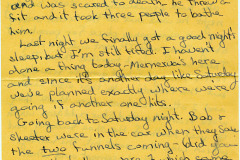 and was scared to death he threw a
fit and it took three people to bathe
him.
Last night we finally got a good night
sleep but I'm still tired. I haven't
done a thing today – Mernerva's here
and since it's another day like Saturday
we've planned exactly where we're
going if another one hits.
Going back to Saturday night. Bob &
skeeter were in the car when they saw
the two funnels coming. Did you